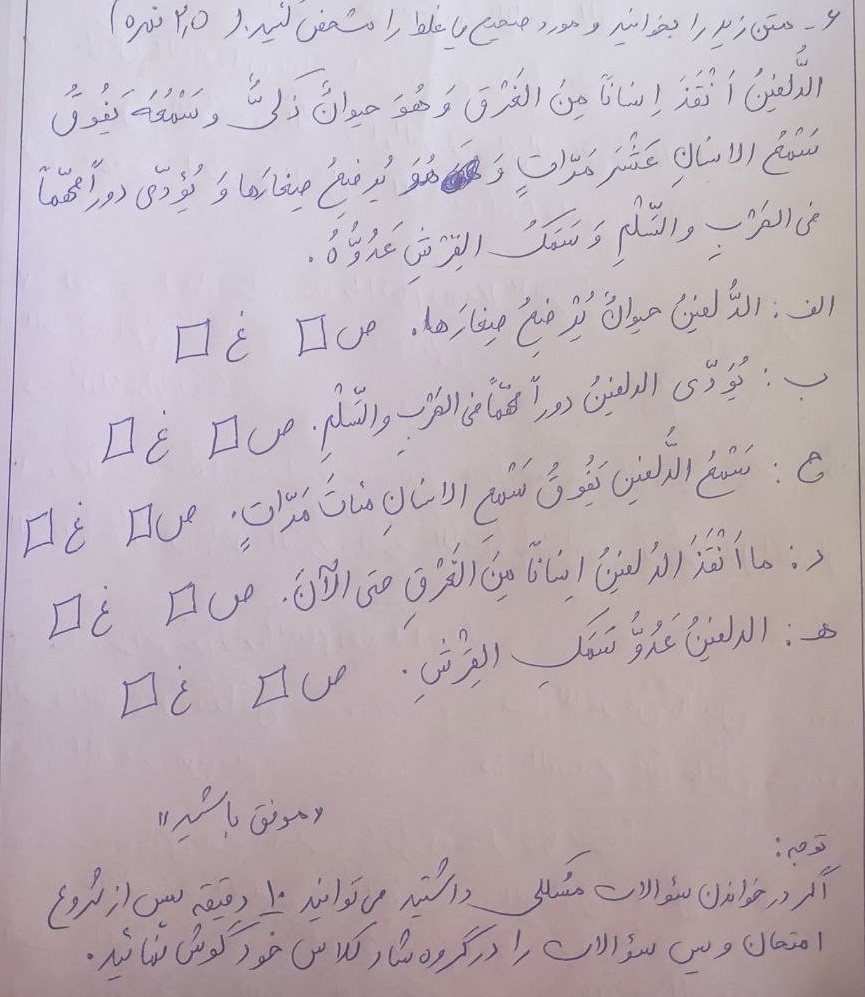 ۶- متن زیر را بخوانید و مورد صحیح یا غلط را مشخص کنید. (۲٫۵ نمره)
الدُّلفینُ أَنْقَذَ إنساناً مِنَ الغَرَقِ وَ هُوَ حیوانٌ ذَکیٌّ و سَمْعُهُ یَفُوقُ
سَمْعَ الانسانِ عَشْرَ مَرّاتٍ وَ هُوَ یُرضِعُ صِغارَها وَ یُؤَدّی دوراً مُهِمّاً
فی الحَرْبِ والسِّلْمِ وَ سَمَکُ القِرْشِ عَدُوُّهُ.
الف: الدُّلفینُ حیوانٌ یُرْضِعُ صِغارَها. ص □ غ □
ب: یُؤَدّی الدلفینُ دوراً مُهِمّاً فی الحَرْبِ والسِّلْمِ. ص □ غ □
ج: سَمْعُ الدُّلفینِ یَفُوقُ سَمْعَ الانسانِ مئاتَ مَرّاتٍ. ص □ غ □
د: ما أَنْقَذَ الدُلفینُ انساناً مِنَ الغَرَقِ حتی الآنَ. ص □ غ □
هـ: الدلفینُ عَدُوُّ سَمَکِ القِرْشِ. ص □ غ □
«موفق باشید»
توجه:
اگر در خواندن سؤالات مشکلی داشتید می‌توانید ۱۰ دقیقه پس از شروع
امتحان ویس سؤالات را در گروه شاد کلاس خود گوش نمائید.